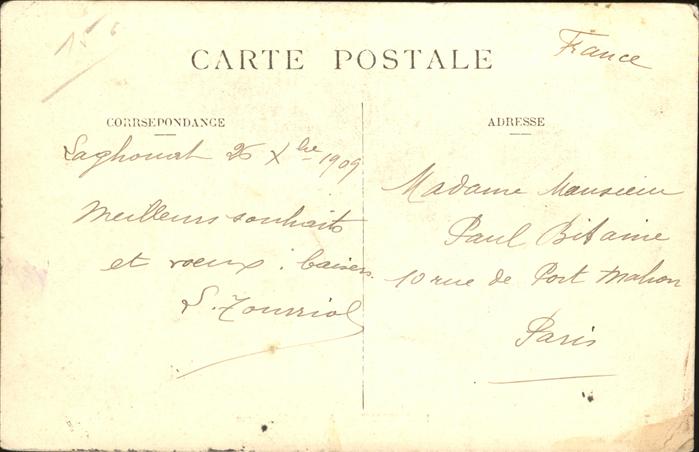 15
CARTE POSTALE
France
CORRSEPONDANCE
Laghouat 26 Xbre 1909
Meilleurs souhaits
et voeux. baisers.
ADRESSE
Madame Monsieur
Paul Bitaine
10 rue de Port Mahon
Paris